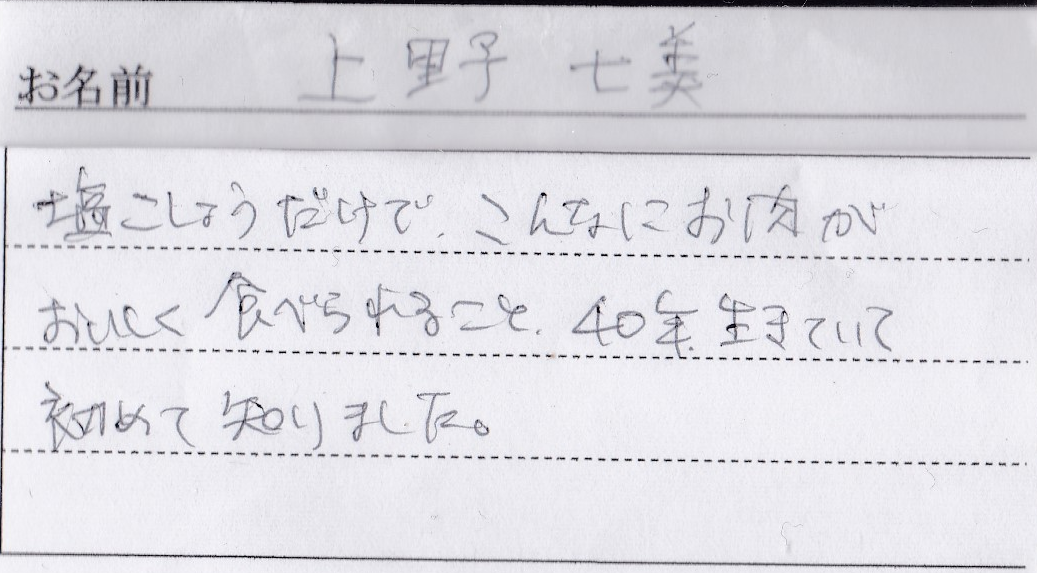 お名前 上野 七美
塩こしょうだけで、こんなにお肉が
おいしく食べられること、40年生きていて
初めて知りました。